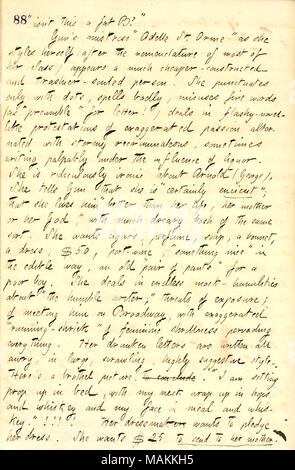 88
"isn't this a fast B?"
Gun's mistress "Odelle St. Orme" as she
styles herself after the nomenclature of most of
her class, appears a much cheaper-constructed
and trashier-souled person. She punctuates
only with dots, spells badly, misuses fine words
(as "preamble" for letter) deals in flashy-novel-
like protestations of exaggerated passion alter-
nated with stormy recriminations, sometimes
writing palpably under the influence of liquor.
She is ridiculously ironic about Arnold (George).
She tells Gun that she is "certainly encient",
that she loves him better than her life, her mother
or her God, with much dreary bosh of the same
sort. She wants cigars, perfume, soap, a bonnet,
a dress, $50, port-wine, "something nice" in
the edible way, "an old pair of pants" for a
poor boy. She deals in endless mock-humilities
about "the humble writer;" threats of exposure;
of meeting him on Broadway, with exaggerated
"running-shriek" of feminine shrillness pervading
everything. Her drunken letters are written all
awry, in large, scrawling, highly suggestive style.
Here's a brothel picture. To conclude. "I am sitting
prop up in bed, with my neck wrap up in hops
and whiskey and my face in meal and whis-
key."!!!! Her dressmaker wants to pledge
her dress. She wants $25 to send to her mother.
alamy
MAKKH5
www.alamy.com